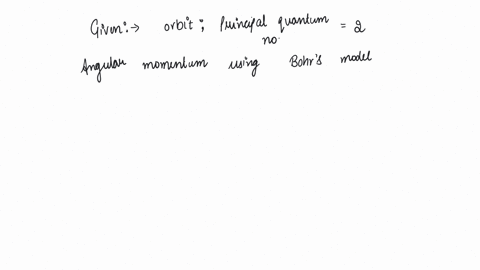 Given:→ orbit; Principal quantum no. = 2
Angular momentum using Bohr's model